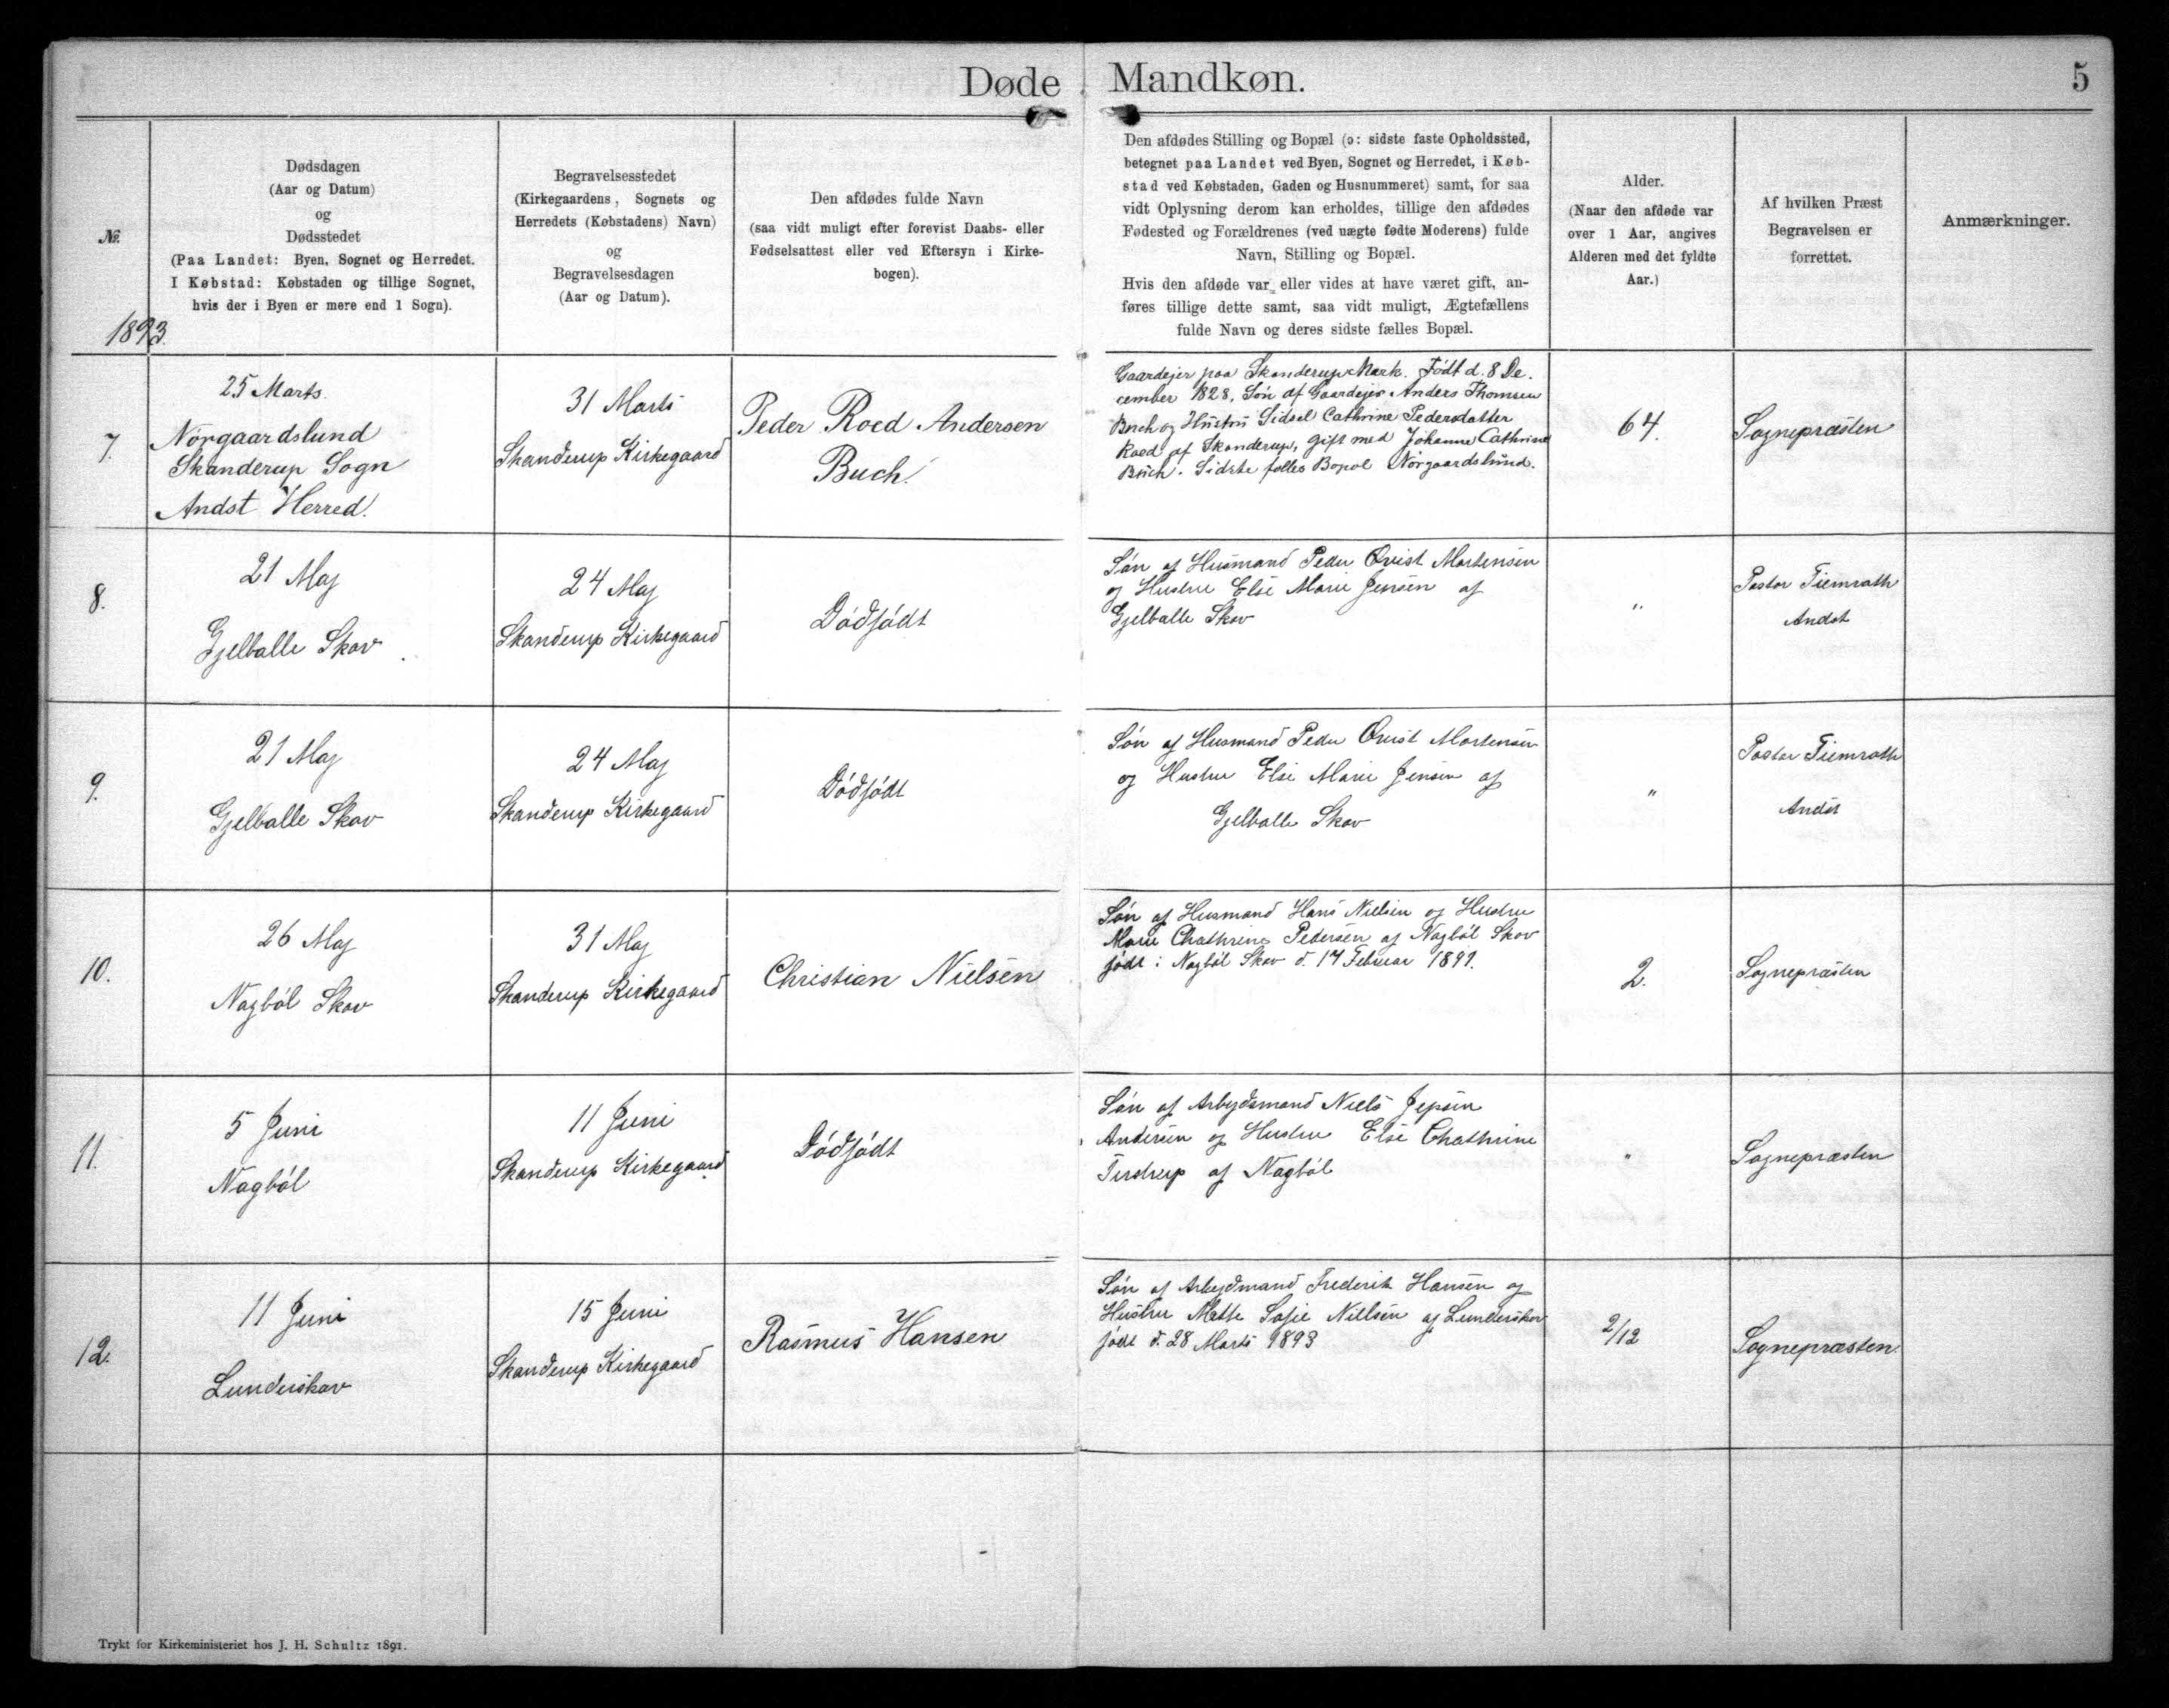 Døde Mandkøn. 5
№.
1893.
Dødsdagen
(Aar og Datum)
og
Dødsstedet
(Paa Landet: Byen, Sognet og Herredet.
I Købstad: Købstaden og tillige Sognet,
hvis der i Byen er mere end 1 Sogn).
Begravelsesstedet
(Kirkegaardens, Sognets og
Herredets (Købstadens) Navn)
og
Begravelsesdagen
(Aar og Datum).
Den afdødes fulde Navn
(saa vidt muligt efter forevist Daabs- eller
Fødselsattest eller ved Eftersyn i Kirke-
bogen).
Den afdødes Stilling og Bopæl (ɔ: sidste faste Opholdssted,
betegnet paa Landet ved Byen, Sognet og Herredet, i Køb-
stad ved Købstaden, Gaden og Husnummeret) samt, for saa
vidt Oplysning derom kan erholdes, tillige den afdødes
Fødested og Forældrenes (ved uægte fødte Moderens) fulde
Navn, Stilling og Bopæl.
Hvis den afdøde var eller vides at have været gift, an-
føres tillige dette samt, saa vidt muligt, Ægtefællens
fulde Navn og deres sidste fælles Bopæl.
Alder.
(Naar den afdøde var
over 1 Aar, angives
Alderen med det fyldte
Aar.)
Af hvilken Præst
Begravelsen er
forrettet.
Anmærkninger.
7.
25 Marts.
Nörgaardslund
Skanderup Sogn
Andst Herred.
31 Marts
Skanderup Kirkegaard
Peder Roed Andersen
Buch.
Gaardejer paa Skanderup Mark. Född d. 8 De.
cember 1828, Søn af Gaardejer Anders Thomsen
Buch og Hustru Sidsel Cathrine Pedersdatter
Roed af Skanderup, gift med Johanne Cathrine
Buch. Sidste fælles Bopæl Nörgaardslund.
64.
Sognepræsten
8.
21 Maj
Gjelballe Skov
24 Maj
Skanderup Kirkegaard
Dödfödt
Sön af Husmand Peder Qvist Mortensen
og Hustru Else Marie Jensen af
Gjelballe Skov
"
Pastor Fiemrath
Andst
9.
21 Maj
Gjelballe Skov
24 Maj
Skanderup Kirkegaard
Dödfödt
Sön af Husmand Peder Qvist Mortensen
og Hustru Else Marie Jensen af
Gjelballe Skov
"
Pastor Fiemrath
Andst
10.
26 Maj
Nagböl Skov
31 Maj
Skanderup Kirkegaard
Christian Nielsen
Sön af Husmand Hans Nielsen og Hustru
Marie Chathrine Pedersen af Nagböl Skov
født i Nagböl Skov d. 17 Februar 1891.
2.
Sognepræsten
11.
5 Juni
Nagböl
11 Juni
Skanderup Kirkegaard
Dödfödt
Sön af Arbejdsmand Niels Jepsen
Andersen og Hustru Else Chathrine
af Nagböl
"
Sognepræsten
12.
11 Juni
Lunderskov
15 Juni
Skanderup Kirkegaard
Rasmus Hansen
Sön af Arbejdmand Frederik Hansen og
Hustru Mette Sofie Nielsen af Lunderskov
født d. 28 Marts 1893
2/12
Sognepræsten
Trykt for Kirkeministeriet hos J. H. Schultz 1891.